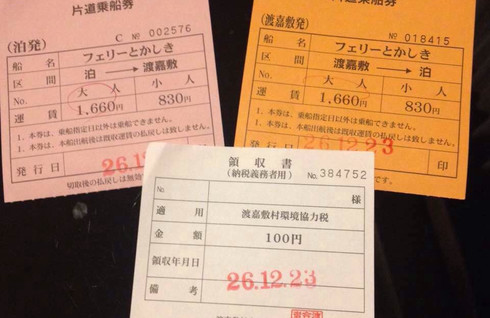 片道乗船券
(泊発)
C № 002576
船名 フェリーとかしき
区間 泊 → 渡嘉敷
No. 大人 小人
運賃 1,660円 830円
1.本券は、乗船指定日以外は乗船できません。
1.本券出航後は既収運賃の払戻し致しません。
発行日 26.12
切取後の払戻しは無効
片道乗船券
(渡嘉敷発)
№ 018415
船名 フェリーとかしき
区間 渡嘉敷 → 泊
No. 大人 小人
運賃 1,660円 830円
1.本券は、乗船指定日以外は乗船できません。
1.本船出航後は既収運賃の払戻し致しません。
発行日 26.12.23 印
領収書
(納税義務者用) No. 384752
No. 様
適用 渡嘉敷村環境協力税
金額 100円
領収年月日 26.12.23
備考